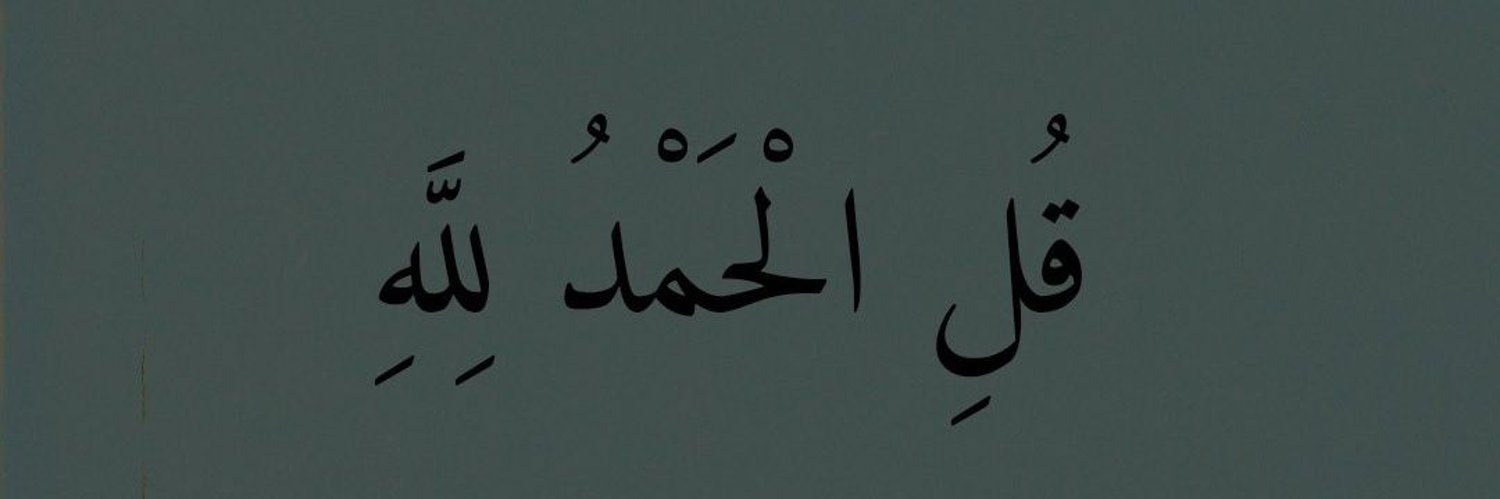 قُلِ الْحَمْدُ لِلَّهِ